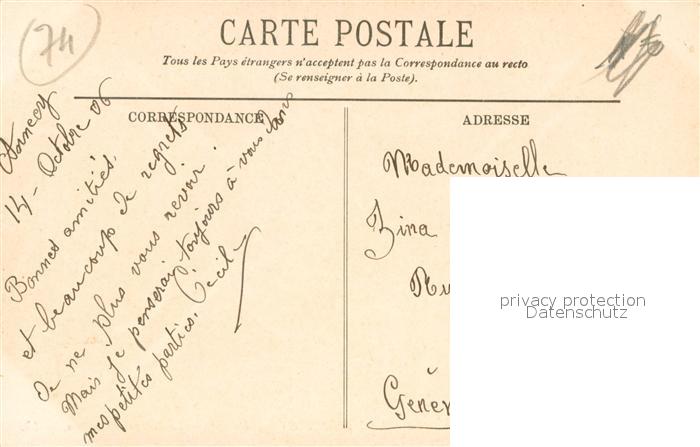 74
CARTE POSTALE
Tous les Pays étrangers n'acceptent pas la Correspondance au recto
(Se renseigner à la Poste).
CORRESPONDANCE
Annecy
14 - Octobre 06
Bonnes amitiés,
et beaucoup de regrets
de ne plus vous revoir.
Mais je penserai toujours à vous dans
mes petites parties. Cécile
ADRESSE
Mademoiselle
Zina
Ru
Genèv
privacy protection
Datenschutz